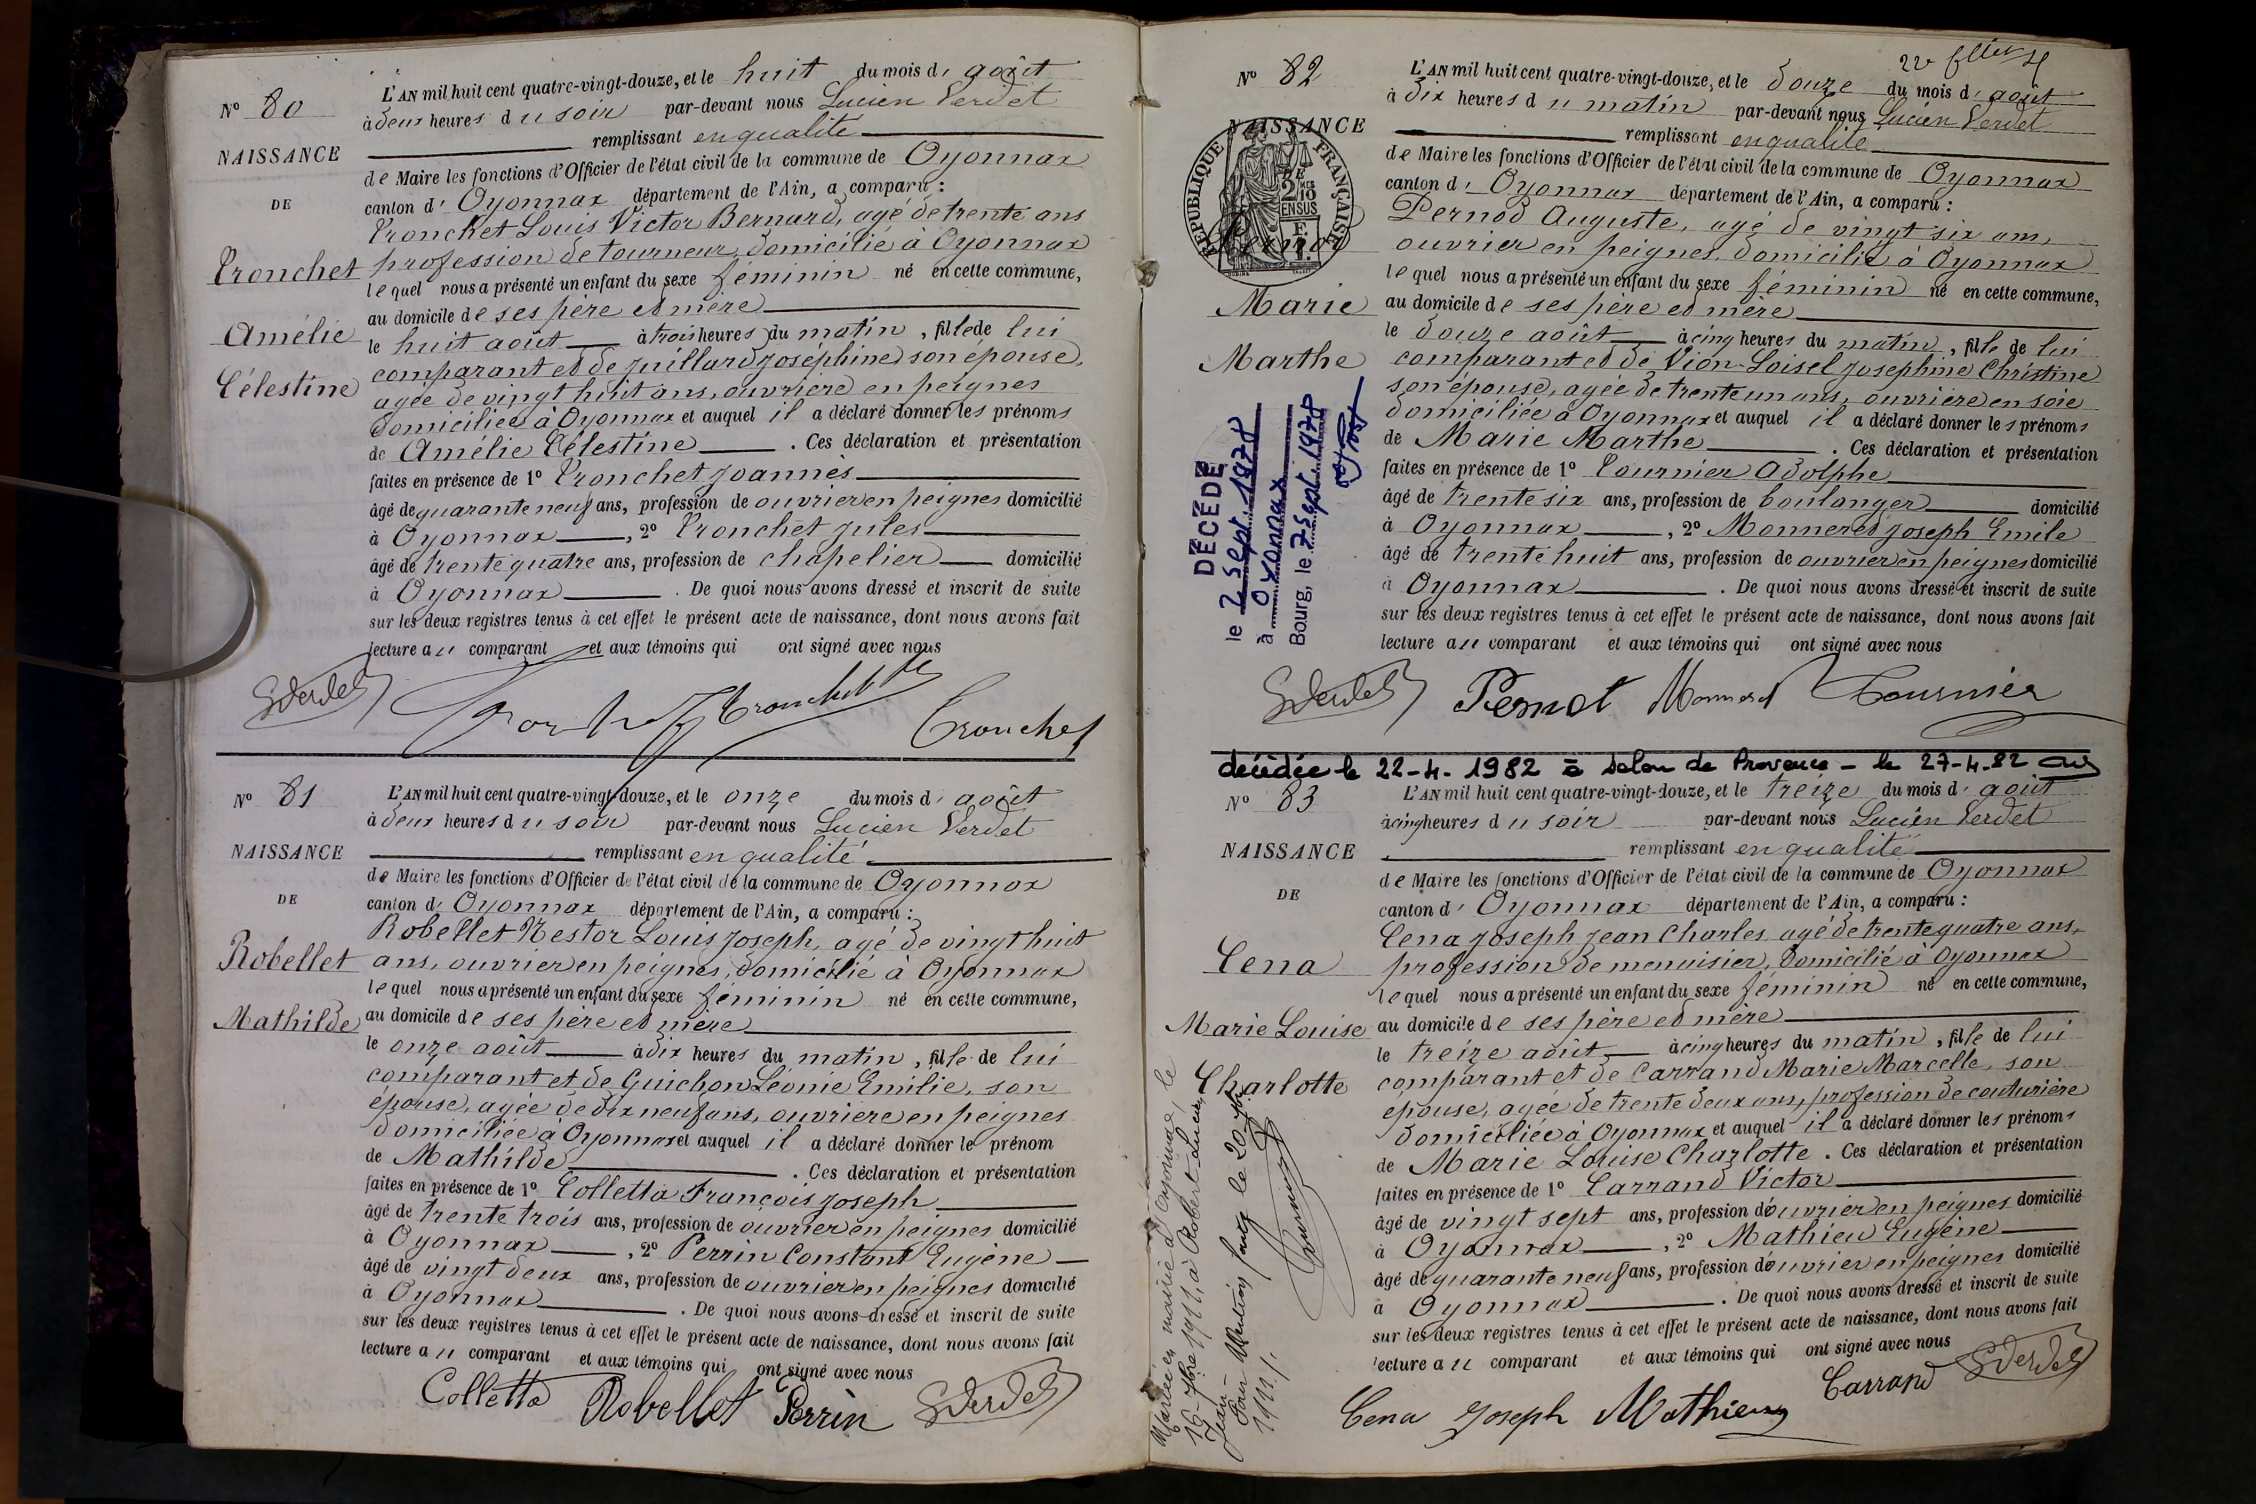 N° 80
NAISSANCE
DE
Tronchet
Amélie
Célestine
L'AN mil huit cent quatre-vingt-douze, et le huit du mois d'août
à deux heures du soir par-devant nous Lucien Verdet
remplissant en qualité
de Maire les fonctions d'Officier de l'état civil de la commune de Oyonnax
canton d'Oyonnax département de l'Ain, a comparu :
Tronchet Louis Victor Bernard, agé de trente ans
profession de tourneur, domicilié à Oyonnax
lequel nous a présenté un enfant du sexe féminin né en cette commune,
au domicile de ses père et mère
le huit août à trois heures du matin, fille de lui
comparant et de Juillard Joséphine son épouse,
agée de vingt huit ans, ouvrière en peignes
domiciliée à Oyonnax et auquel il a déclaré donner les prénoms
de Amélie Célestine . Ces déclaration et présentation
faites en présence de 1° Tronchet Joannès
âgé de quarante neuf ans, profession de ouvrier en peignes domicilié
à Oyonnax , 2° Tronchet Jules
âgé de trente quatre ans, profession de chapelier domicilié
à Oyonnax . De quoi nous avons dressé et inscrit de suite
sur les deux registres tenus à cet effet le présent acte de naissance, dont nous avons fait
lecture au comparant et aux témoins qui ont signé avec nous
LVerdet Tronchet Tronchet
N° 81
NAISSANCE
DE
Robellet
Mathilde
L'AN mil huit cent quatre-vingt-douze, et le onze du mois d'août
à deux heures du soir par-devant nous Lucien Verdet
remplissant en qualité
de Maire les fonctions d'Officier de l'état civil de la commune de Oyonnax
canton d'Oyonnax département de l'Ain, a comparu :
Robellet Nestor Louis Joseph, agé de vingt huit
ans, ouvrier en peignes, domicilié à Oyonnax
lequel nous a présenté un enfant du sexe féminin né en cette commune,
au domicile de ses père et mère
le onze août à dix heures du matin, fille de lui
comparant et de Guichon Léonie Emilie, son
épouse, agée de dix neuf ans, ouvrière en peignes
domiciliée à Oyonnax et auquel il a déclaré donner le prénom
de Mathilde . Ces déclaration et présentation
faites en présence de 1° Colletta François Joseph
âgé de trente trois ans, profession de ouvrier en peignes domicilié
à Oyonnax , 2° Perrin Constant Eugène
âgé de vingt deux ans, profession de ouvrier en peignes domicilié
à Oyonnax . De quoi nous avons dressé et inscrit de suite
sur les deux registres tenus à cet effet le présent acte de naissance, dont nous avons fait
lecture au comparant et aux témoins qui ont signé avec nous
Colletta Robellet Perrin LVerdet
22e
N° 82
NAISSANCE
REPUBLIQUE FRANÇAISE
2 DMES
10
EN SUS
Marie
Marthe
DÉCÉDÉ
le 2 Sept. 1978
à Oyonnax
Bourg, le 7 Sept. 1978
L'AN mil huit cent quatre-vingt-douze, et le douze du mois d'août
à dix heures du matin par-devant nous Lucien Verdet
remplissant en qualité
de Maire les fonctions d'Officier de l'état civil de la commune de Oyonnax
canton d'Oyonnax département de l'Ain, a comparu :
Pernod Auguste, agé de vingt six ans,
ouvrier en peignes, domicilié à Oyonnax
lequel nous a présenté un enfant du sexe féminin né en cette commune,
au domicile de ses père et mère
le douze août à cinq heures du matin, fille de lui
comparant et de Vion-Loisel Joséphine Christine
son épouse, agée de trente un ans, ouvrière en soie
domiciliée à Oyonnax et auquel il a déclaré donner les prénoms
de Marie Marthe . Ces déclaration et présentation
faites en présence de 1° Tournier Adolphe
âgé de trente six ans, profession de boulanger domicilié
à Oyonnax , 2° Monneret Joseph Emile
âgé de trente huit ans, profession de ouvrier en peignes domicilié
à Oyonnax . De quoi nous avons dressé et inscrit de suite
sur les deux registres tenus à cet effet le présent acte de naissance, dont nous avons fait
lecture au comparant et aux témoins qui ont signé avec nous
LVerdet Pernot Monneret Tournier
décédée le 22-4-1982 à Salon de Provence - le 27-4-82
N° 83
NAISSANCE
DE
Cena
Marie Louise
Charlotte
Mariée en mairie d'Oyonnax, le
16 7bre 1911, à Robert Lucien
Jean -
Pour Mention faite le 20 7bre
1911.
L'AN mil huit cent quatre-vingt-douze, et le treize du mois d'août
à cinq heures du soir par-devant nous Lucien Verdet
remplissant en qualité
de Maire les fonctions d'Officier de l'état civil de la commune de Oyonnax
canton d'Oyonnax département de l'Ain, a comparu :
Cena Joseph Jean Charles agé de trente quatre ans,
profession de menuisier, domicilié à Oyonnax
lequel nous a présenté un enfant du sexe féminin né en cette commune,
au domicile de ses père et mère
le treize août à cinq heures du matin, fille de lui
comparant et de Carrand Marie Marcelle, son
épouse, agée de trente deux ans, profession de couturière
domiciliée à Oyonnax et auquel il a déclaré donner les prénoms
de Marie Louise Charlotte . Ces déclaration et présentation
faites en présence de 1° Carrand Victor
âgé de vingt sept ans, profession d'ouvrier en peignes domicilié
à Oyonnax , 2° Mathieu Eugène
âgé de quarante neuf ans, profession d'ouvrier en peignes domicilié
à Oyonnax . De quoi nous avons dressé et inscrit de suite
sur les deux registres tenus à cet effet le présent acte de naissance, dont nous avons fait
lecture au comparant et aux témoins qui ont signé avec nous
Cena Joseph Mathieu Carrand LVerdet